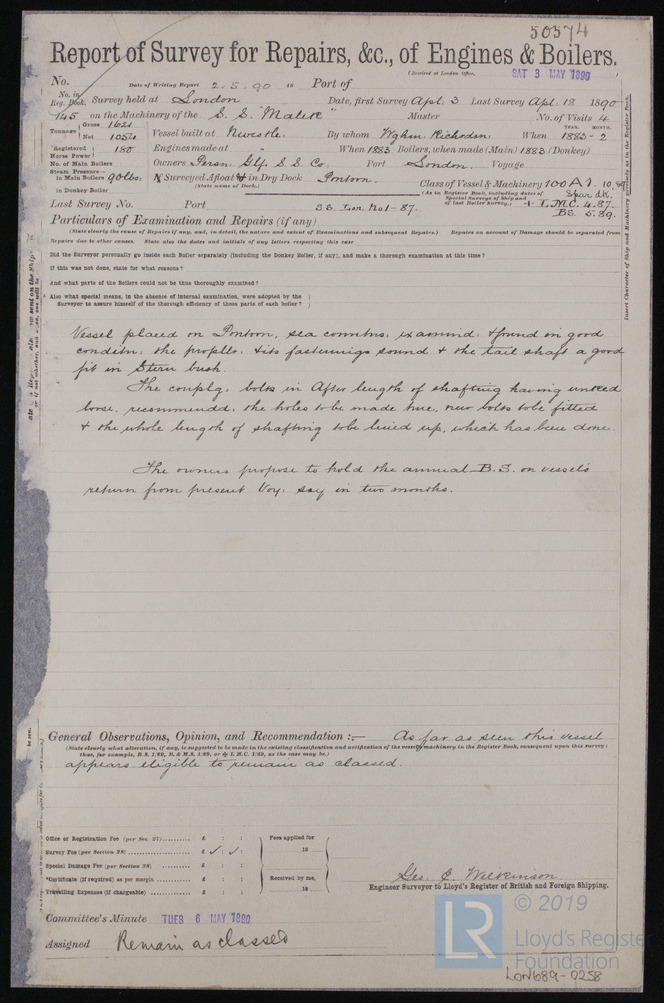 50574
Report of Survey for Repairs, &c., of Engines & Boilers.
(Received at London Office, SAT 3 MAY 1890
No. Date of Writing Report 2.5.90 18 Port of
No. in Reg. Book. Survey held at London Date, first Survey Apl. 3 Last Survey Apl. 18 1890
145 on the Machinery of the S.S. "Malek" Master No. of Visits 4
Tonnage Gross 1621 Net 1054 Vessel built at Newcstle: By whom Wghm. Richdsn: When YEAR. MONTH. 1883-2
Registered Horse Power 180 Engines made at " When 1883 Boilers, when made (Main) 1883 (Donkey)
No. of Main Boilers Owners Persn. Glf. S. S. Co. Port London. Voyage
Steam Pressure— in Main Boilers 90lbs. If Surveyed Afloat or in Dry Dock Pontoon. Class of Vessel & Machinery 100A1. 10,89
(State name of Dock.) (As in Register Book, including dates of Special Surveys of Ship and of last Boiler Survey.) Spar dk.
in Donkey Boiler
Last Survey No. Port SS. Lon. No1-87. + L.M.C. 4.87.
BS. 5.89.
Particulars of Examination and Repairs (if any)
(State clearly the cause of Repairs if any, and, in detail, the nature and extent of Examinations and subsequent Repairs.) Repairs on account of Damage should be separated from
Repairs due to other causes. State also the dates and initials of any letters respecting this case
Insert Character of Ship and Machinery precisely as in the Register Book.
Did the Surveyor personally go inside each Boiler separately (including the Donkey Boiler, if any), and make a thorough examination at this time?
If this was not done, state for what reasons?
And what parts of the Boilers could not be thus thoroughly examined?
Also what special means, in the absence of internal examination, were adopted by the
Surveyor to assure himself of the thorough efficiency of those parts of each boiler?
Vessel placed on Pontoon, sea conntns: examind: & found in good
conditn: the proplle: & its fastenings sound & the tail shaft a good
fit in Stern bush.
The couplg: bolts in After length of shafting having worked
loose, recommendd: the holes to be made true, new bolts to be fitted
& the whole length of shafting to be lined up, which has been done.
The owners propose to hold the annual B.S. on vessels
return from present Voy: say in two months.
General Observations, Opinion, and Recommendation :— As far as seen this vessel
(State clearly what alteration, if any, is suggested to be made in the existing classification and notification of the vessel's machinery in the Register Book, consequent upon this survey:
thus, for example, B.S. 1/89, B. & M.S. 1/89, or L.M.C. 1/89, as the case may be.)
appears eligible to remain as classed.
Office or Registration Fee (per Sec. 27) £ : : Fees applied for
Survey Fee (per Section 28) £ : : 18
Special Damage Fee (per Section 28) £ : :
*Certificate (if required) as per margin £ : : Received by me,
Travelling Expenses (if chargeable) £ : : 18
Geo. C. Wilkinson.
Engineer Surveyor to Lloyd's Register of British and Foreign Shipping.
Committee's Minute TUES 6 MAY 1890
Assigned Remain as classed
LR © 2019
Lloyd's Register
Foundation
LON689-0258